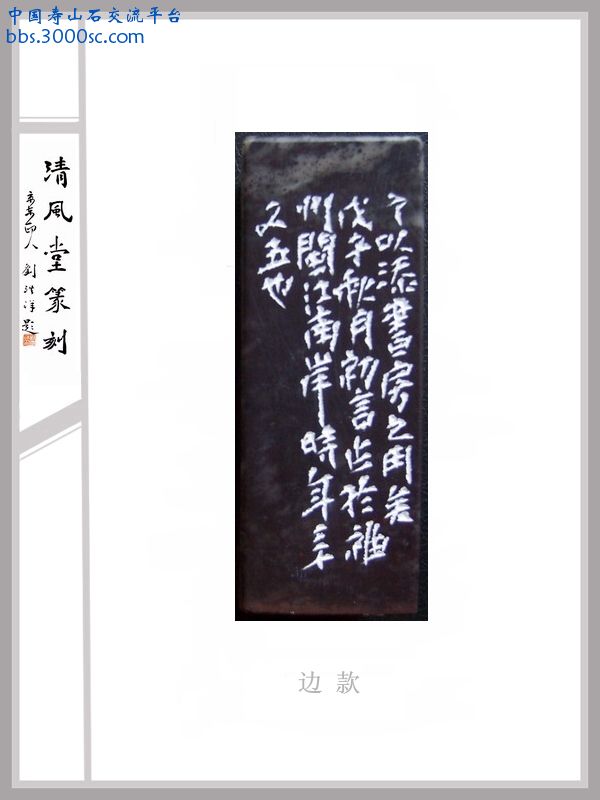 中国寿山石交流平台
bbs.3000sc.com
清風堂篆刻
印人 劉洪洋題
以添書房之用矣
戊子秋月初言作於福
州閩江南岸時年三十
又五也
边款